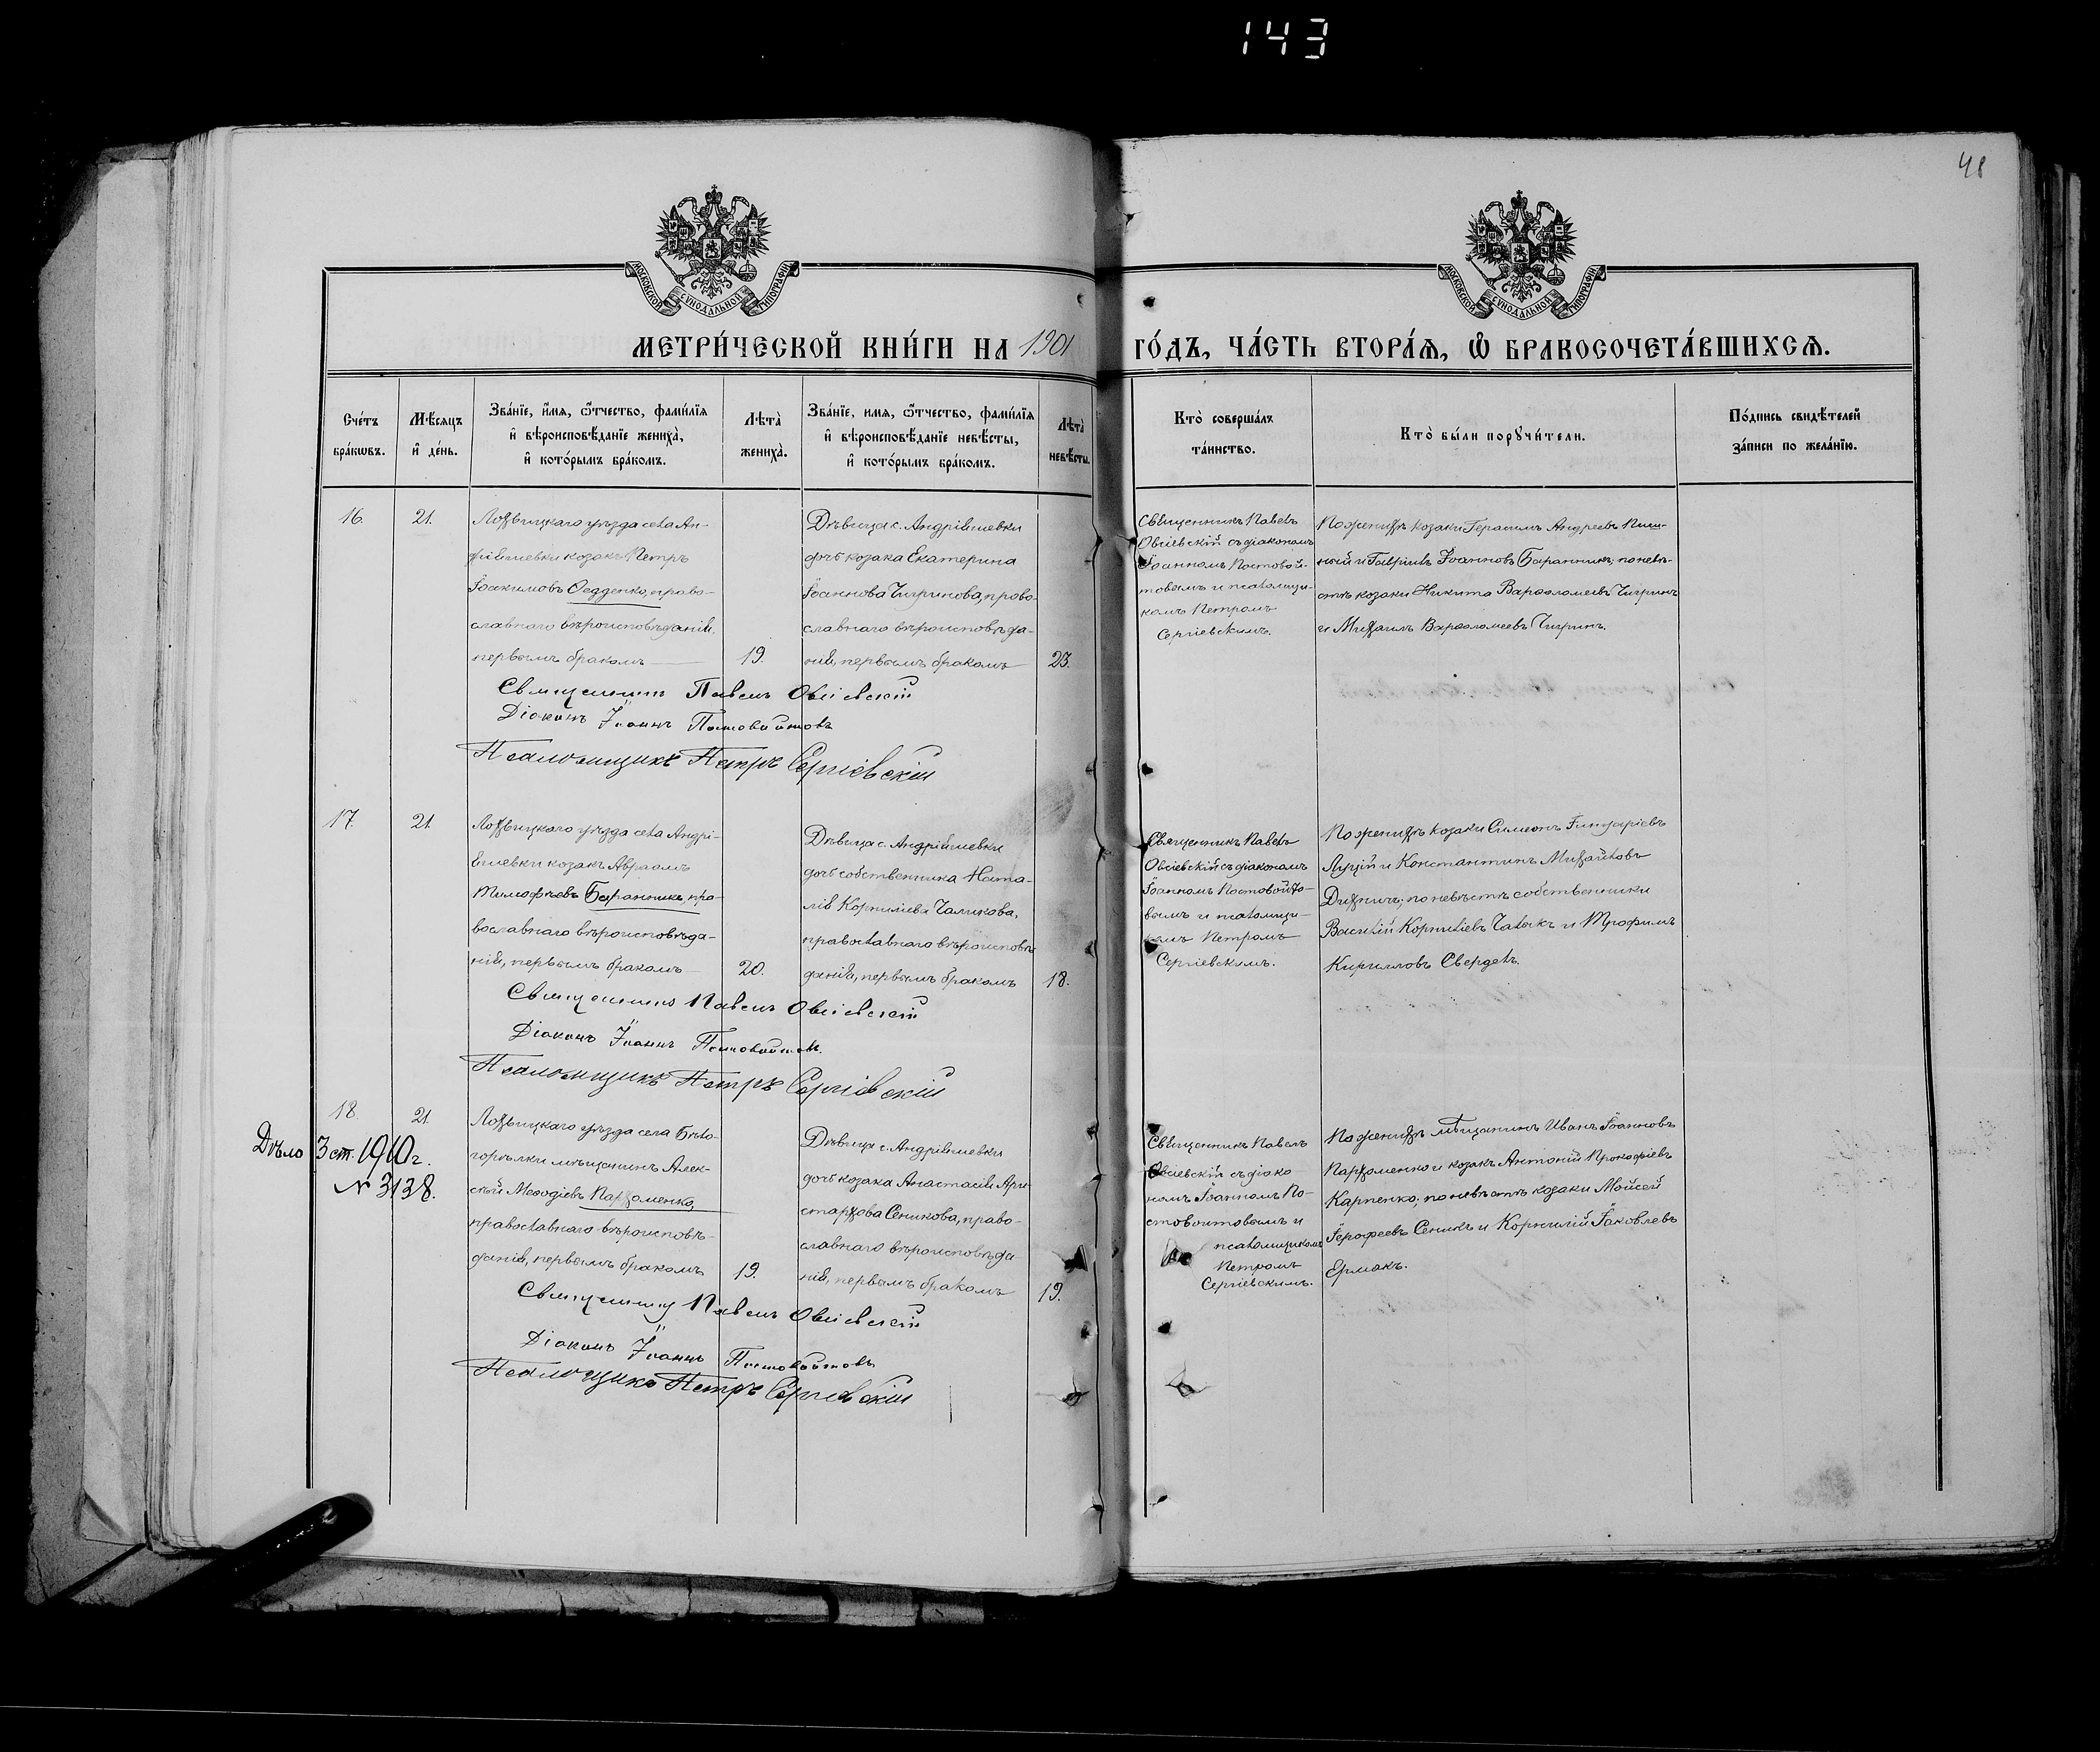 143
48
МОСКОВСКОЙ СУНОДАЛЬНОЙ ТИПОГРАФІИ
МОСКОВСКОЙ СУНОДАЛЬНОЙ ТИПОГРАФІИ
МЕТРИ́ЧЕСКОЙ КНИ́ГИ НА 1901 ГО́ДЪ, ЧА́СТЬ ВТОРА́Я, Ѽ БРАКОСОЧЕТА́ВШИХСЯ.
Сче́тъ
бра́кѡвъ.
Мѣ́сяцъ
и҆ де́нь.
Зва́нїе, и҆́мя, ѻ҆́тчество, фами́лїя
и҆ вѣроисповѣ́данїе жениха̀,
и҆ кото́рымъ бра́комъ.
Лѣта̀
жениха̀.
Зва́нїе, имя, ѻ҆́тчество, фами́лїя
и҆ вѣроисповѣ́данїе невѣ́сты,
и҆ кото́рымъ бра́комъ.
Лѣта̀
невѣ́сты.
Кто̀ соверша́лъ
та́инство.
Кто̀ бы́ли порꙋчи́тели.
По́дпись свидѣ́телей
за́писи по жела́нїю.
16.
21.
Лохвицкаго уѣзда села Ан-
дріяшевки козакъ Петръ
Іоакимовъ Федденко, право-
славнаго вѣроисповѣданія,
первымъ бракомъ
19.
Дѣвица с. Андріяшевки
дочь козака Екатерина
Іоаннова Чигринова, право-
славнаго вѣроисповѣда-
нія, первымъ бракомъ
23.
Священникъ Павелъ
Овсіевскій съ діакономъ
Іоанномъ Постовой-
товымъ и псаломщи-
комъ Петромъ
Сергіевскимъ.
По женихѣ козаки Герасимъ Андреевъ
ный и Гавріилъ Іоанновъ Баранникъ; по невѣ-
стѣ козаки Никита Варѳоломеевъ Чигринъ
и Михаилъ Варѳоломеевъ Чигринъ.
Священникъ Павелъ Овсіевскій
Діаконъ Іоаннъ Постовойтовъ
Псаломщикъ Петръ Сергіевскій
17.
21.
Лохвицкаго уѣзда села Андрі-
яшевки козакъ Авраамъ
Тимоѳеевъ Баранникъ, пра-
вославнаго вѣроисповѣда-
нія, первымъ бракомъ
20.
Дѣвица с. Андріяшевки
дочь собственника Ната-
лія Корниліева Чалакова,
православнаго вѣроисповѣ-
данія, первымъ бракомъ
18.
Священникъ Павелъ
Овсіевскій съ діакономъ
Іоанномъ Постовойто-
вымъ и псаломщи-
комъ Петромъ
Сергіевскимъ.
По женихѣ козаки Симеонъ
и Константинъ Михайловъ
по невѣстѣ собственники
Василій Корниліевъ Чалакъ и Трофимъ
Кирилловъ Сверделъ.
Священникъ Павелъ Овсіевскій
Діаконъ Іоаннъ Постовойтовъ.
Псаломщикъ Петръ Сергіевскій
18.
21.
Дѣло 3 ст. 1910 г.
№ 3138.
Лохвицкаго уѣзда села Бѣло-
горѣлки мѣщанинъ Алек-
сѣй Меѳодіевъ Пархоменко,
православнаго вѣроисповѣ-
данія, первымъ бракомъ
19.
Дѣвица с. Андріяшевки
дочь козака Анастасія Ари-
стархова Сеникова, право-
славнаго вѣроисповѣда
нія, первымъ бракомъ
19.
Священникъ Павелъ
Овсіевскій съ діако
номъ Іоанномъ По-
стовоитовымъ и
псаломщикомъ
Петромъ
Сергіевскимъ.
По женихѣ мѣщанинъ Иванъ Іоанновъ
Пархоменко и козакъ Антоній Прокофіевъ
Карпенко; по невѣстѣ козаки Моисей
Іерофеевъ Сеникъ и Корнилій Іаковлевъ
Ермакъ.
Священникъ Павелъ Овсіевскій
Діаконъ Іоаннъ Постовойтовъ
Псаломщикъ Петръ Сергіевскій